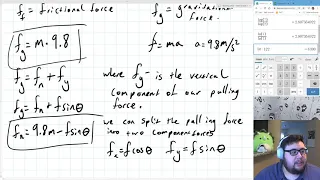 f_f = frictional force
f_g = gravitational force.
f_g = m · 9.8
f = ma a = 9.8 m/s²
f_g = f_n + f_y
where f_y - is the vertical
component of our pulling
force.
f_g = f_n + f sinθ
f_n = 9.8m - f sinθ
we can split the pulling force
into two component forces
f_x = f cosθ f_y = f sinθ